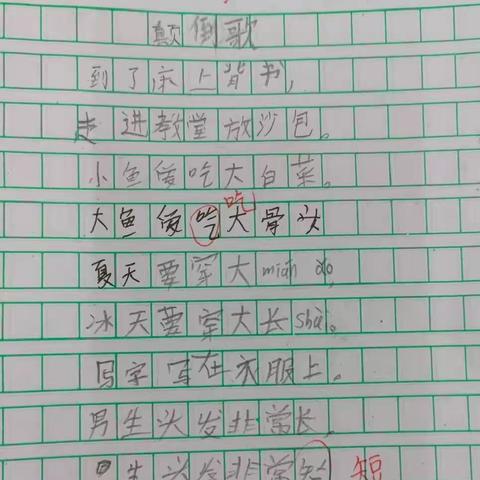 颠倒歌
到了床上背书,
走进教堂放沙包。
小鱼爱吃大白菜。
吃
大鱼爱吃大骨头
夏天要穿大mián ǎo,
冰天要穿大长shān。
写字写在衣服上。
男生头发非常长。
生头发非常短 短